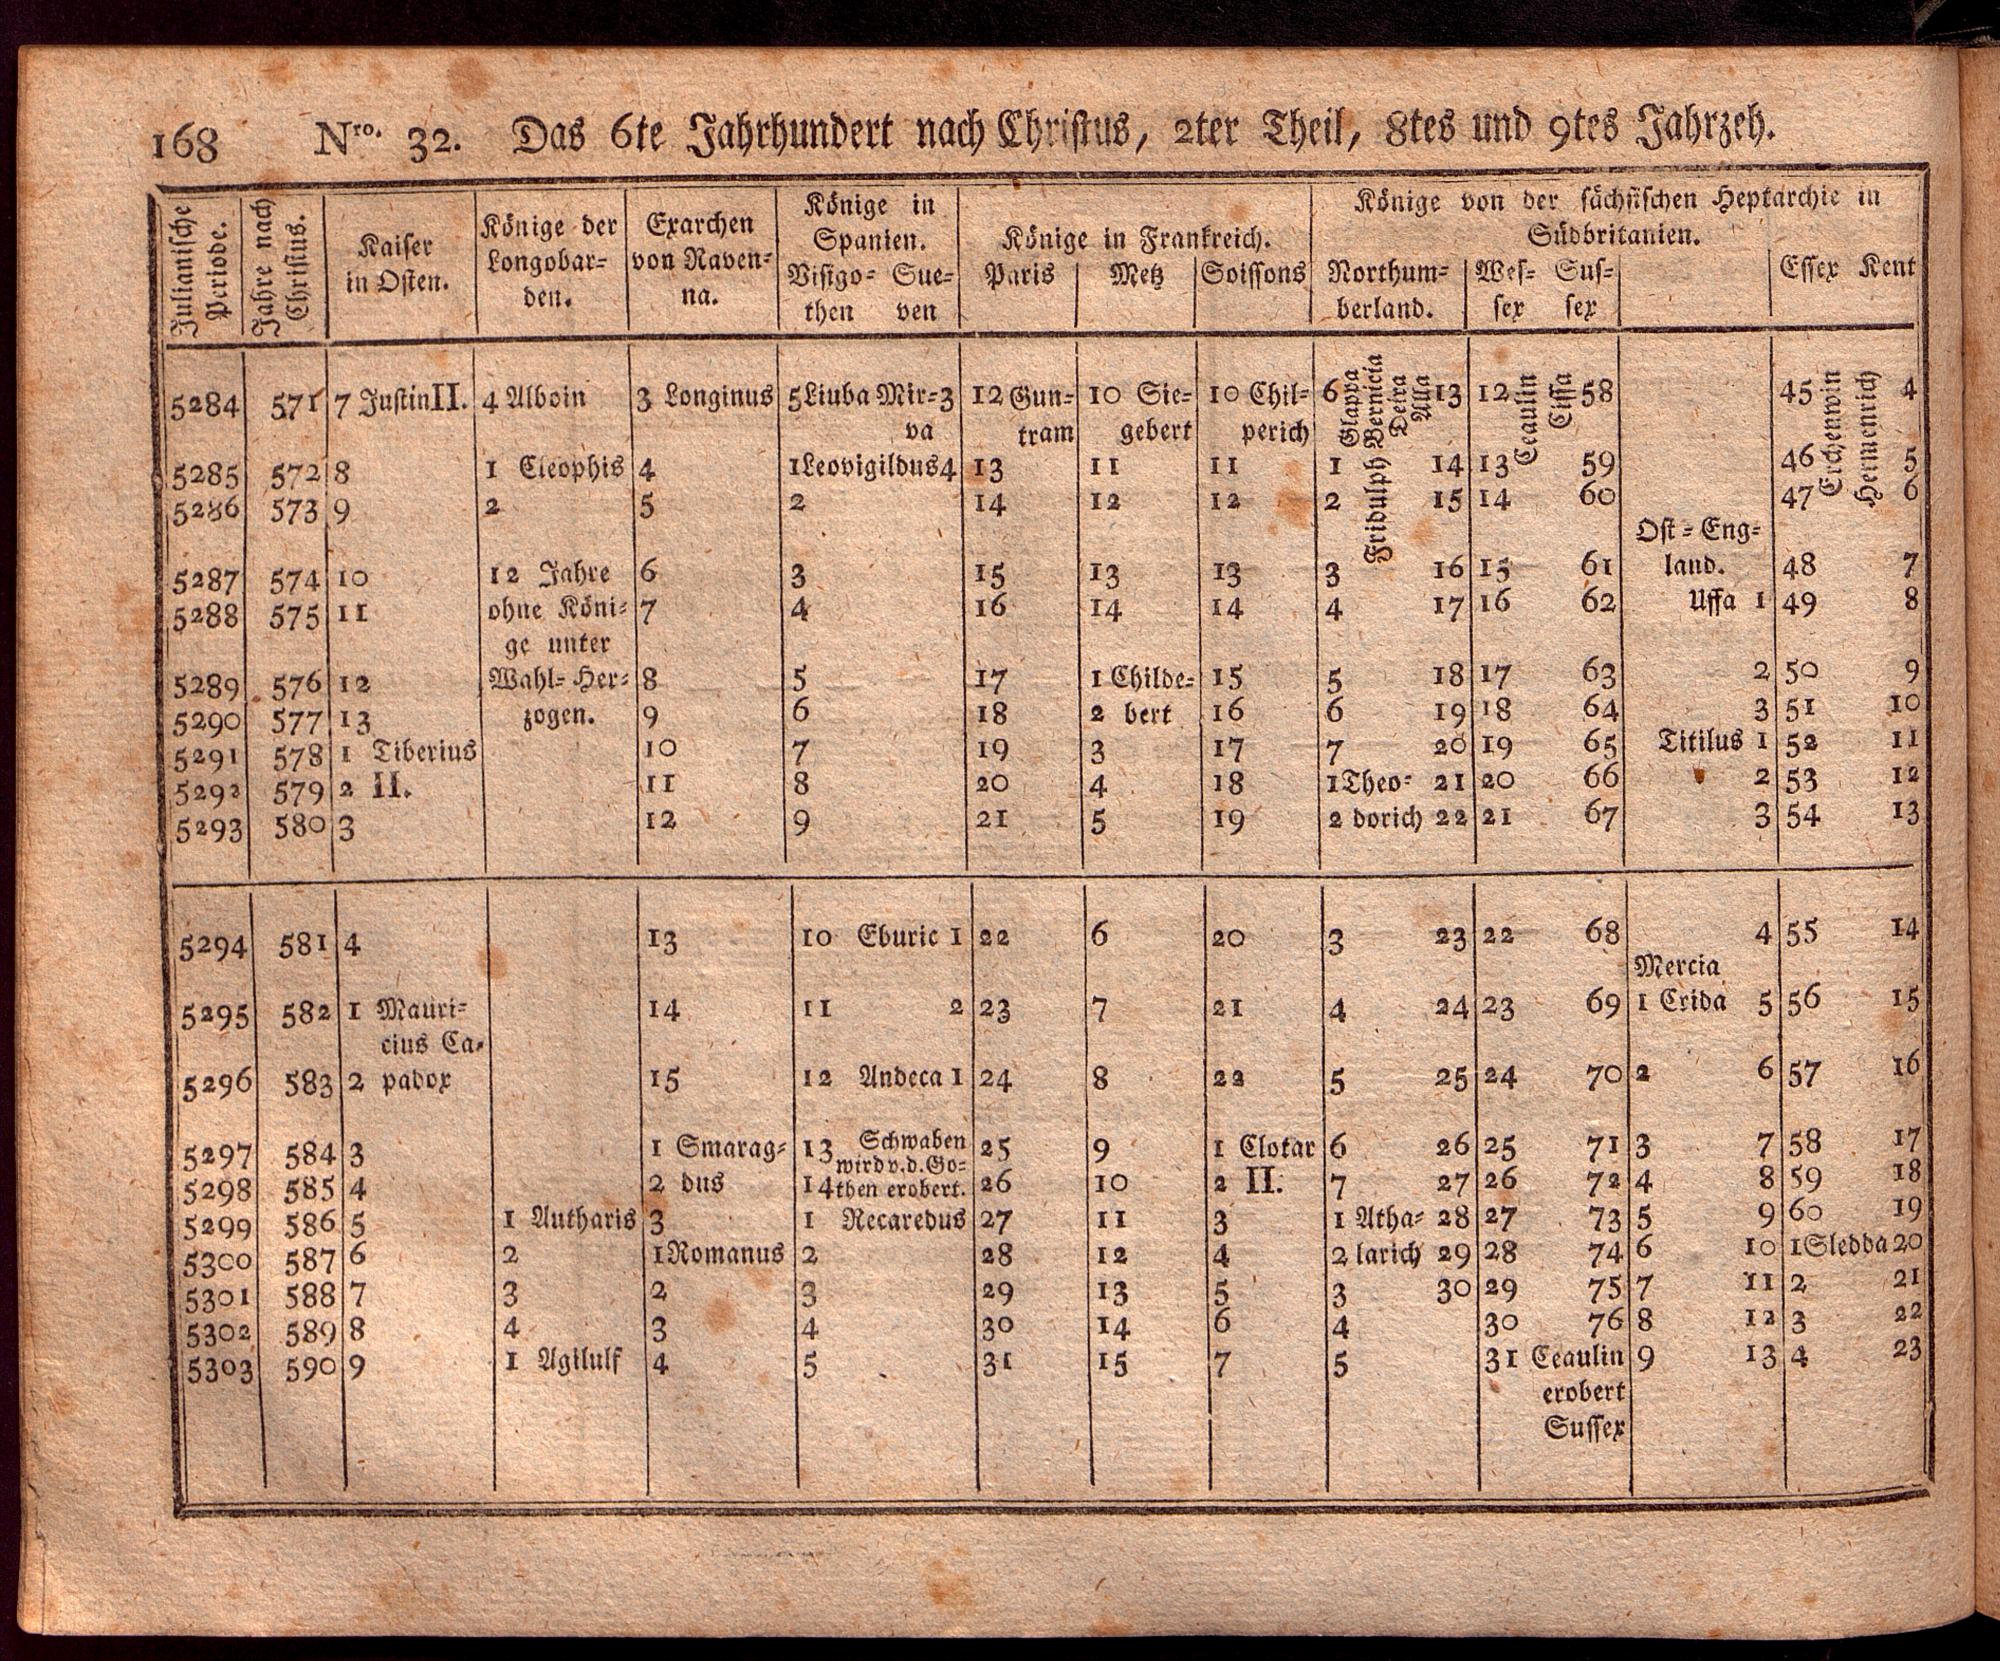 168 Nro. 32. Das 6te Jahrhundert nach Christus, 2ter Theil, 8tes und 9tes Jahrzeh.
Julianische Periode.
Jahre nach Christus.
Kaiser
in Osten.
Könige der
Longobar-
den.
Exarchen
von Raven-
na.
Könige in
Spanien.
Visigo- Sue-
then ven
Könige in Frankreich.
Paris Metz Soissons
Könige von der sächsischen Heptarchie in
Südbritanien.
Northum-
berland.
Wes- Sus-
sex sex
Essex Kent
5284 571 7 Justin II. 4 Alboin 3 Longinus 5 Liuba Mir- 3 12 Gun- 10 Sie- 10 Chil- 6 Glappa Bernicia Deira Alla 13 12 Ceaulin Cissa 58 45 Erchenwin Hermenrich 4
va tram gebert perich
5285 572 8 1 Cleophis 4 1 Leovigildus 4 13 11 11 1 Fridulph 14 13 59 46 5
5286 573 9 2 5 2 14 12 12 2 15 14 60 47 6
Ost-Eng-
5287 574 10 12 Jahre 6 3 15 13 13 3 16 15 61 land. 48 7
5288 575 11 ohne Köni- 7 4 16 14 14 4 17 16 62 Uffa 1 49 8
ge unter
5289 576 12 Wahl-Her- 8 5 17 1 Childe- 15 5 18 17 63 2 50 9
5290 577 13 zogen. 9 6 18 2 bert 16 6 19 18 64 3 51 10
5291 578 1 Tiberius 10 7 19 3 17 7 20 19 65 Titilus 1 52 11
5292 579 2 II. 11 8 20 4 18 1 Theo- 21 20 66 2 53 12
5293 580 3 12 9 21 5 19 2 dorich 22 21 67 3 54 13
5294 581 4 13 10 Eburic 1 22 6 20 3 23 22 68 4 55 14
Mercia
5295 582 1 Mauri- 14 11 2 23 7 21 4 24 23 69 1 Crida 5 56 15
cius Ca-
5296 583 2 padox 15 12 Andeca 1 24 8 22 5 25 24 70 2 6 57 16
5297 584 3 1 Smarag- 13 Schwaben 25 9 1 Clotar 6 26 25 71 3 7 58 17
wird v. d. Go-
5298 585 4 2 dus 14 then erobert. 26 10 2 II. 7 27 26 72 4 8 59 18
5299 586 5 1 Autharis 3 1 Recaredus 27 11 3 1 Atha- 28 27 73 5 9 60 19
5300 587 6 2 1 Romanus 2 28 12 4 2 larich 29 28 74 6 10 1 Sledda 20
5301 588 7 3 2 3 29 13 5 3 30 29 75 7 11 2 21
5302 589 8 4 3 4 30 14 6 4 30 76 8 12 3 22
5303 590 9 1 Agilulf 4 5 31 15 7 5 31 Ceaulin 9 13 4 23
erobert
Sussex